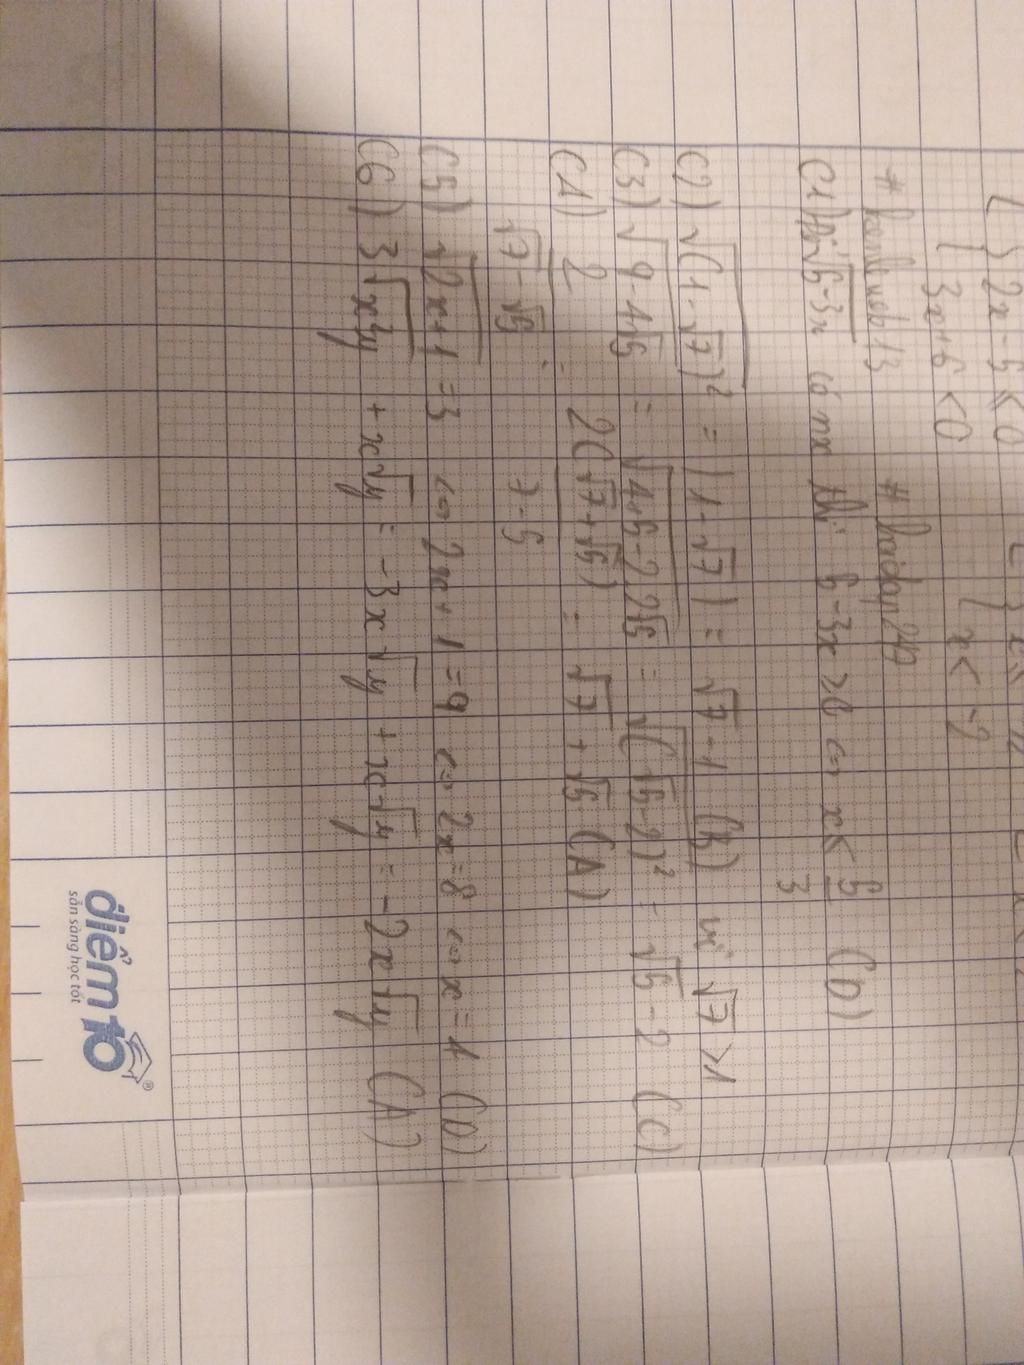 2x - 5 ≤ 0
3x + 6 < 0
x < -2
C1) √5-3x có nx thì 5-3x ≥ 0 <=> x ≤ 5/3 (D)
C2) √(1-√7)² = |1-√7| = √7-1 (B) vì √7 > 1
C3) √9-4√5 = √4+5-2.2√5 = √(√5-2)² = √5-2 (C)
C4) 2/(√7-√5) = 2(√7+√5)/(7-5) = √7+√5 (A)
C5) √2x+1 = 3 <=> 2x+1 = 9 <=> 2x = 8 <=> x = 4 (D)
C6) 3√x²y + x√y = -3x√y + x√y = -2x√y (A)
điểm10®
sẵn sàng học tốt